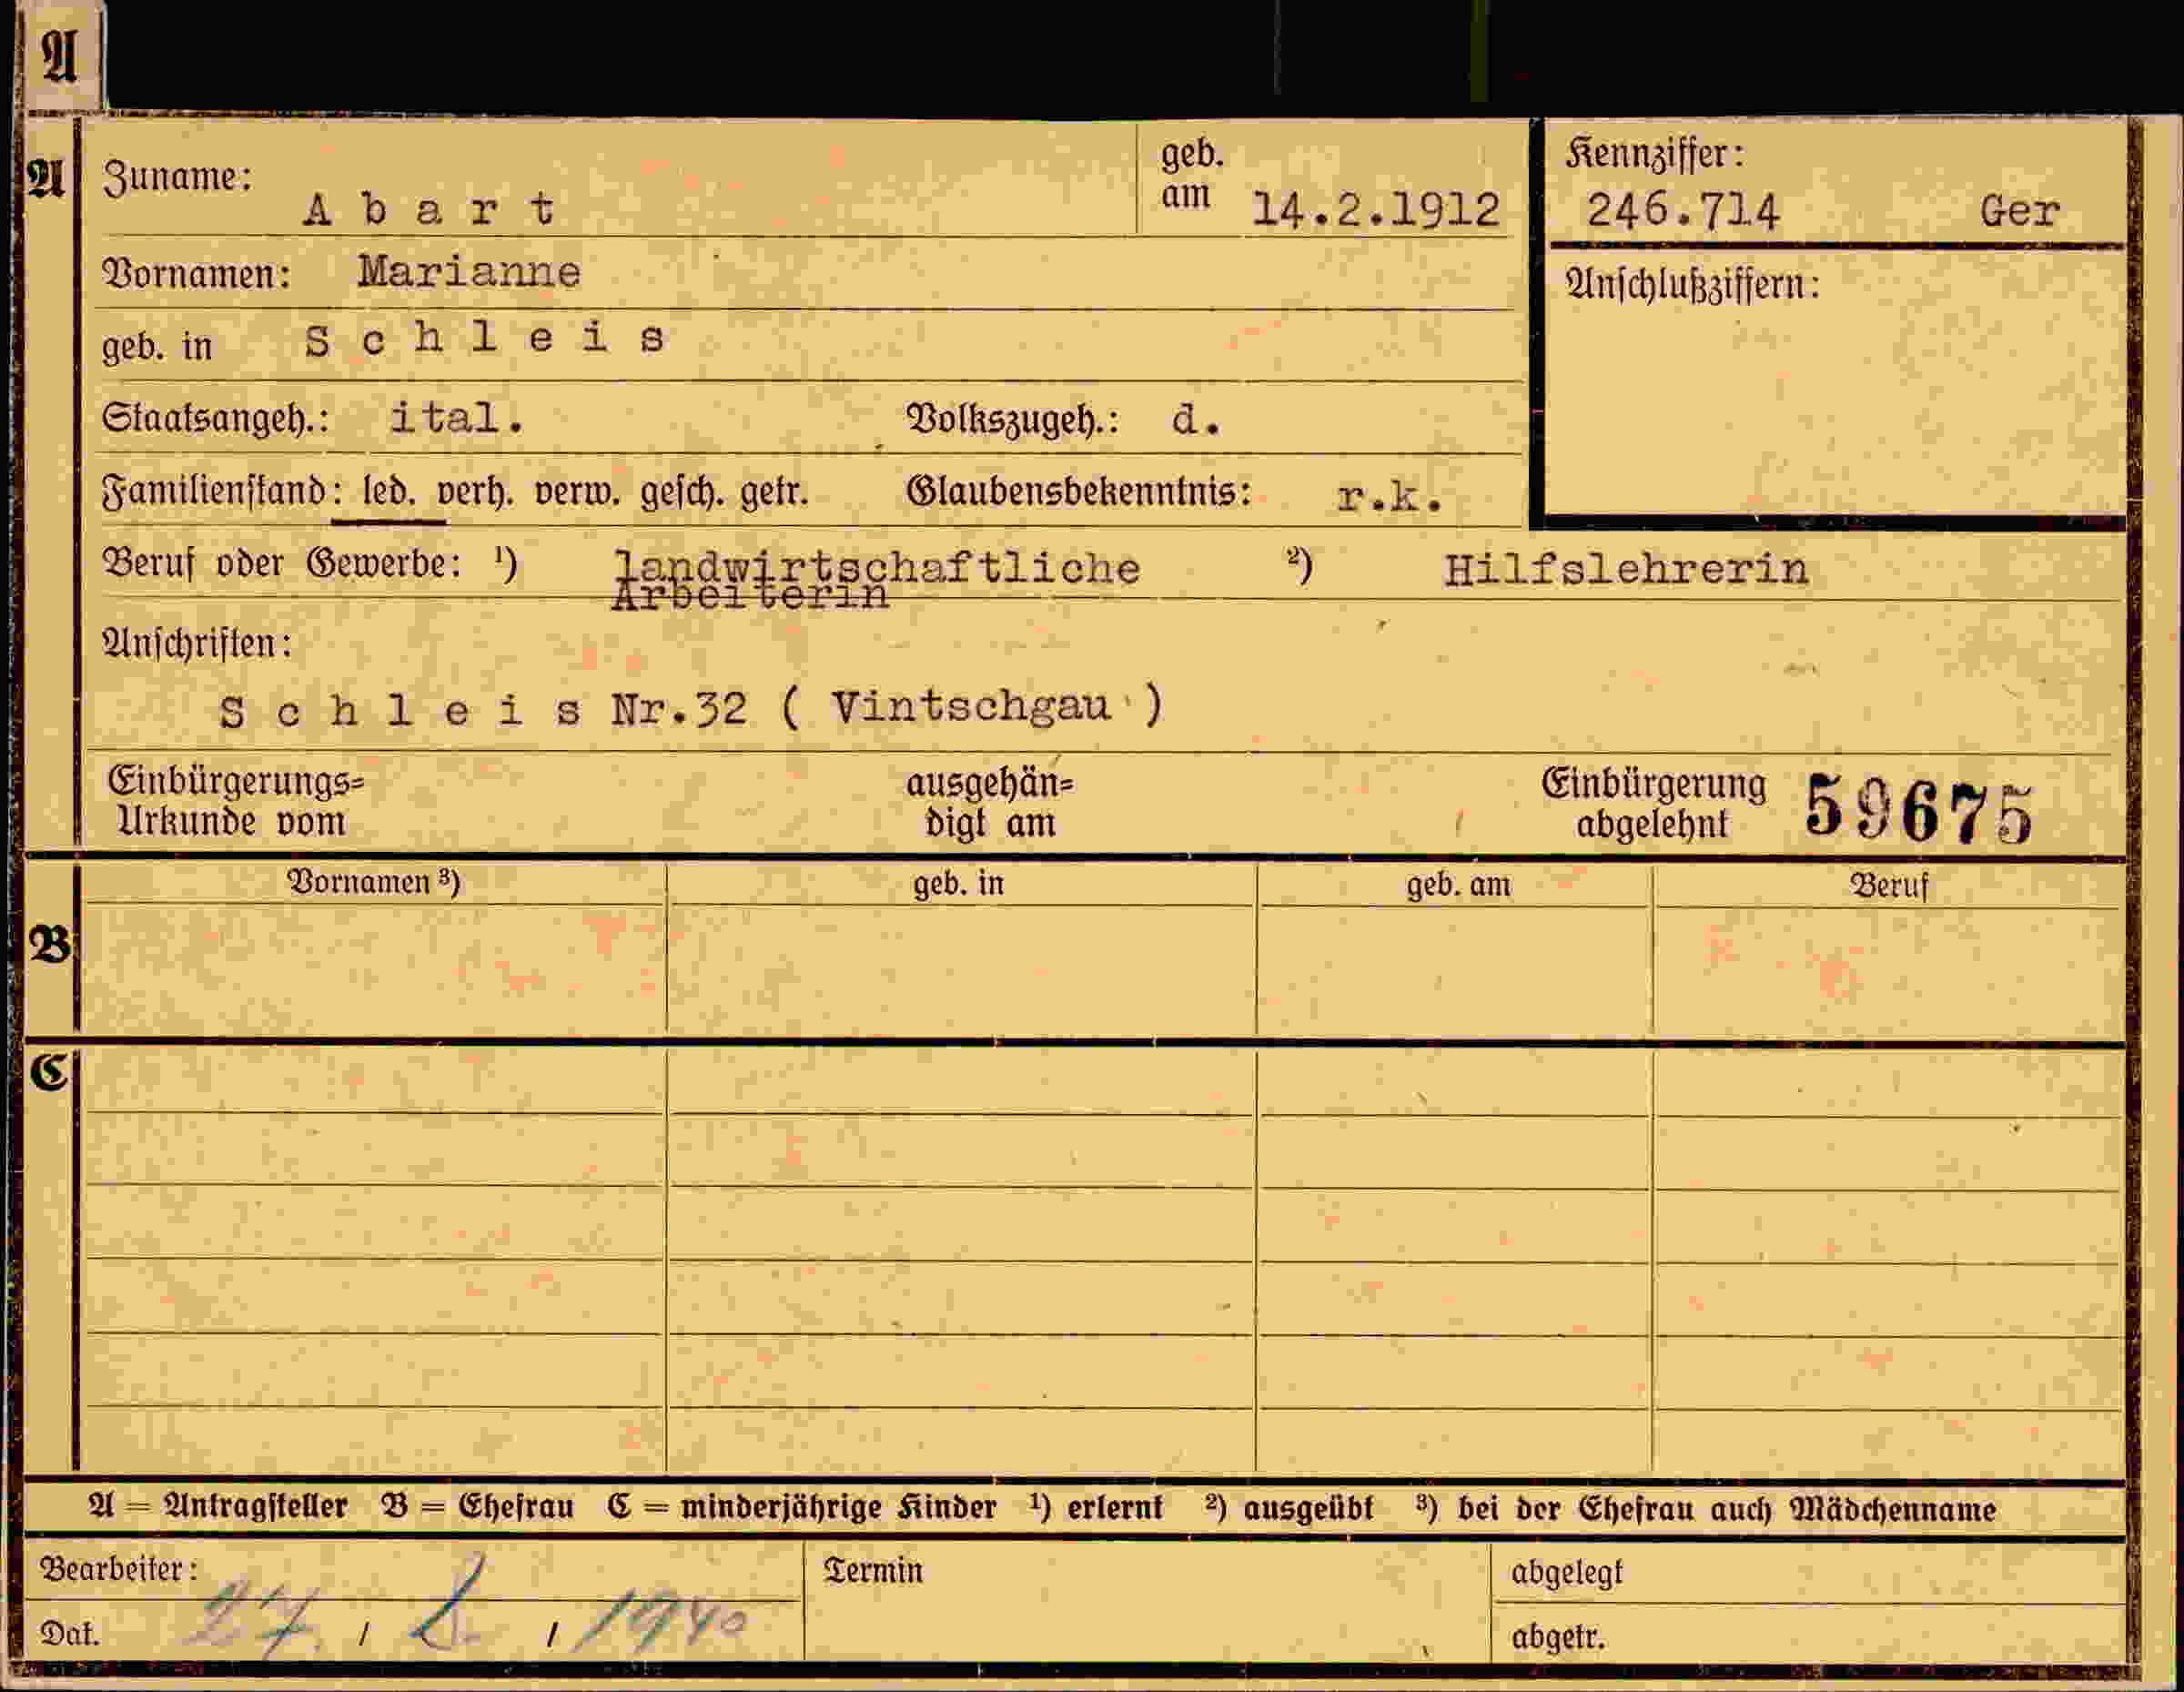 A
A
Zuname: A b a r t
geb. am 14.2.1912
Kennziffer:
246.714 Ger
Vornamen: Marianne
Anschlußziffern:
geb. in S c h l e i s
Staatsangeh.: ital. Volkszugeh.: d.
Familienstand: led. verh. verw. gesch. getr. Glaubensbekenntnis: r.k.
Beruf oder Gewerbe: ¹) landwirtschaftliche ²) Hilfslehrerin
Arbeiterin
Anschriften:
S c h l e i s Nr.32 ( Vintschgau )
Einbürgerungs= ausgehän= Einbürgerung 59675
Urkunde vom digt am abgelehnt
Vornamen ³) geb. in geb. am Beruf
B
C
A = Antragsteller B = Ehefrau C = minderjährige Kinder ¹) erlernt ²) ausgeübt ³) bei der Ehefrau auch Mädchenname
Bearbeiter: Termin abgelegt
Dat. 27. / / 1940 abgetr.